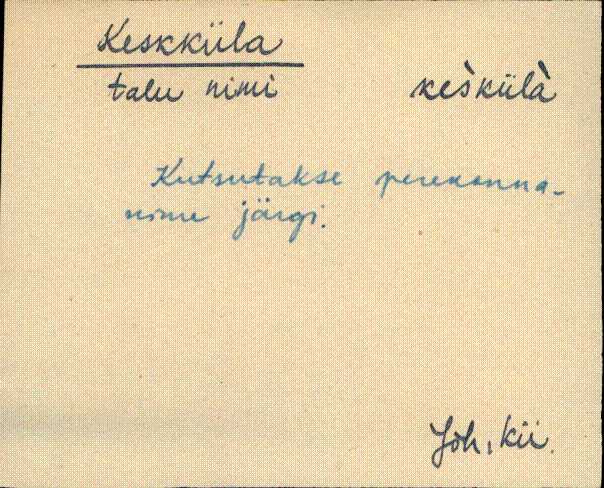 Keskküla
talu nimi kes̀külà
Kutsutakse perekonna-
nime järgi.
Jõh, kii.